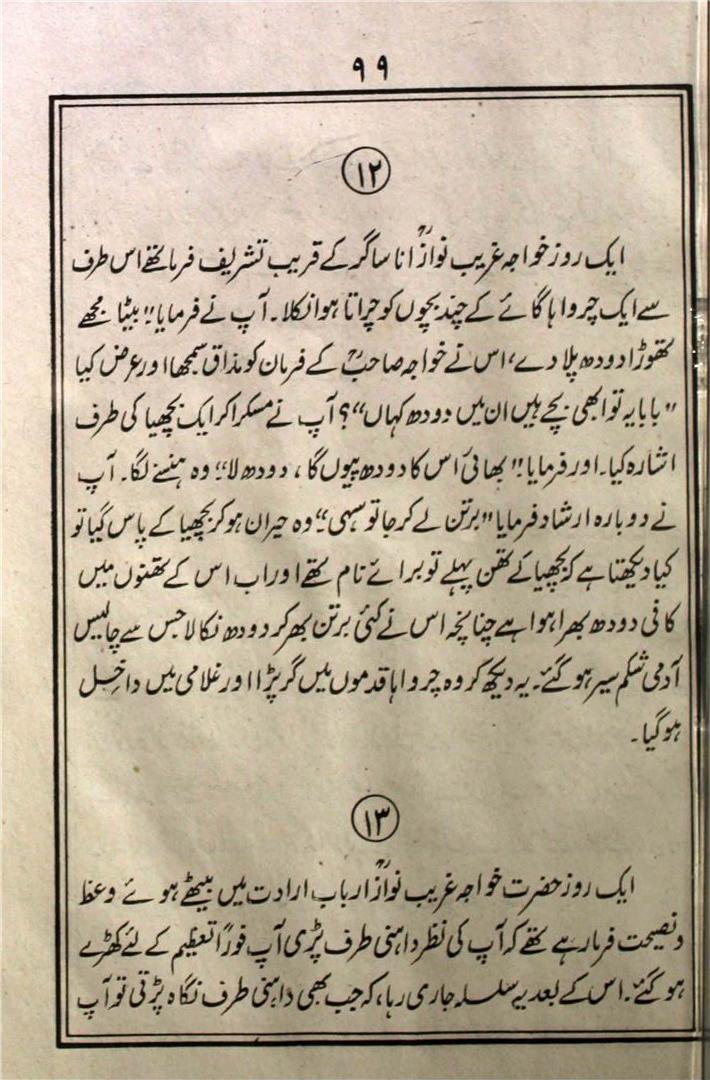 ۹۹
۱۲
ایک روز خواجہ غریب نوازؒ انا ساگر کے قریب تشریف فرما تھے اس طرف
سے ایک چرواہا گائے کے چند بچوں کو چراتا ہوا نکلا۔ آپ نے فرمایا!! بیٹا مجھے
تھوڑا دودھ پلا دے، اس نے خواجہ صاحبؒ کے فرمان کو مذاق سمجھا اور عرض کیا
"بابا یہ تو ابھی بچے ہیں ان میں دودھ کہاں"؟ آپ نے مسکرا کر ایک بچھیا کی طرف
اشارہ کیا۔ اور فرمایا!! بھائی اس کا دودھ پیوں گا، دودھ لا" وہ ہنسنے لگا۔ آپ
نے دوبارہ ارشاد فرمایا "برتن لے کر جا تو سہی" وہ حیران ہو کر بچھیا کے پاس گیا تو
کیا دیکھتا ہے کہ بچھیا کے تھن پہلے تو برائے نام تھے اور اب اس کے تھنوں میں
کافی دودھ بھرا ہوا ہے چنانچہ اس نے کئی برتن بھر کر دودھ نکالا جس سے چالیس
آدمی شکم سیر ہو گئے۔ یہ دیکھ کر وہ چرواہا قدموں میں گر پڑا اور غلامی میں داخل
ہو گیا۔
۱۳
ایک روز حضرت خواجہ غریب نوازؒ ارباب ارادت میں بیٹھے ہوئے وعظ
و نصیحت فرما رہے تھے کہ آپ کی نظر داہنی طرف پڑی آپ فوراً تعظیم کے لئے کھڑے
ہو گئے۔ اس کے بعد یہ سلسلہ جاری رہا، کہ جب بھی داہنی طرف نگاہ پڑتی تو آپ